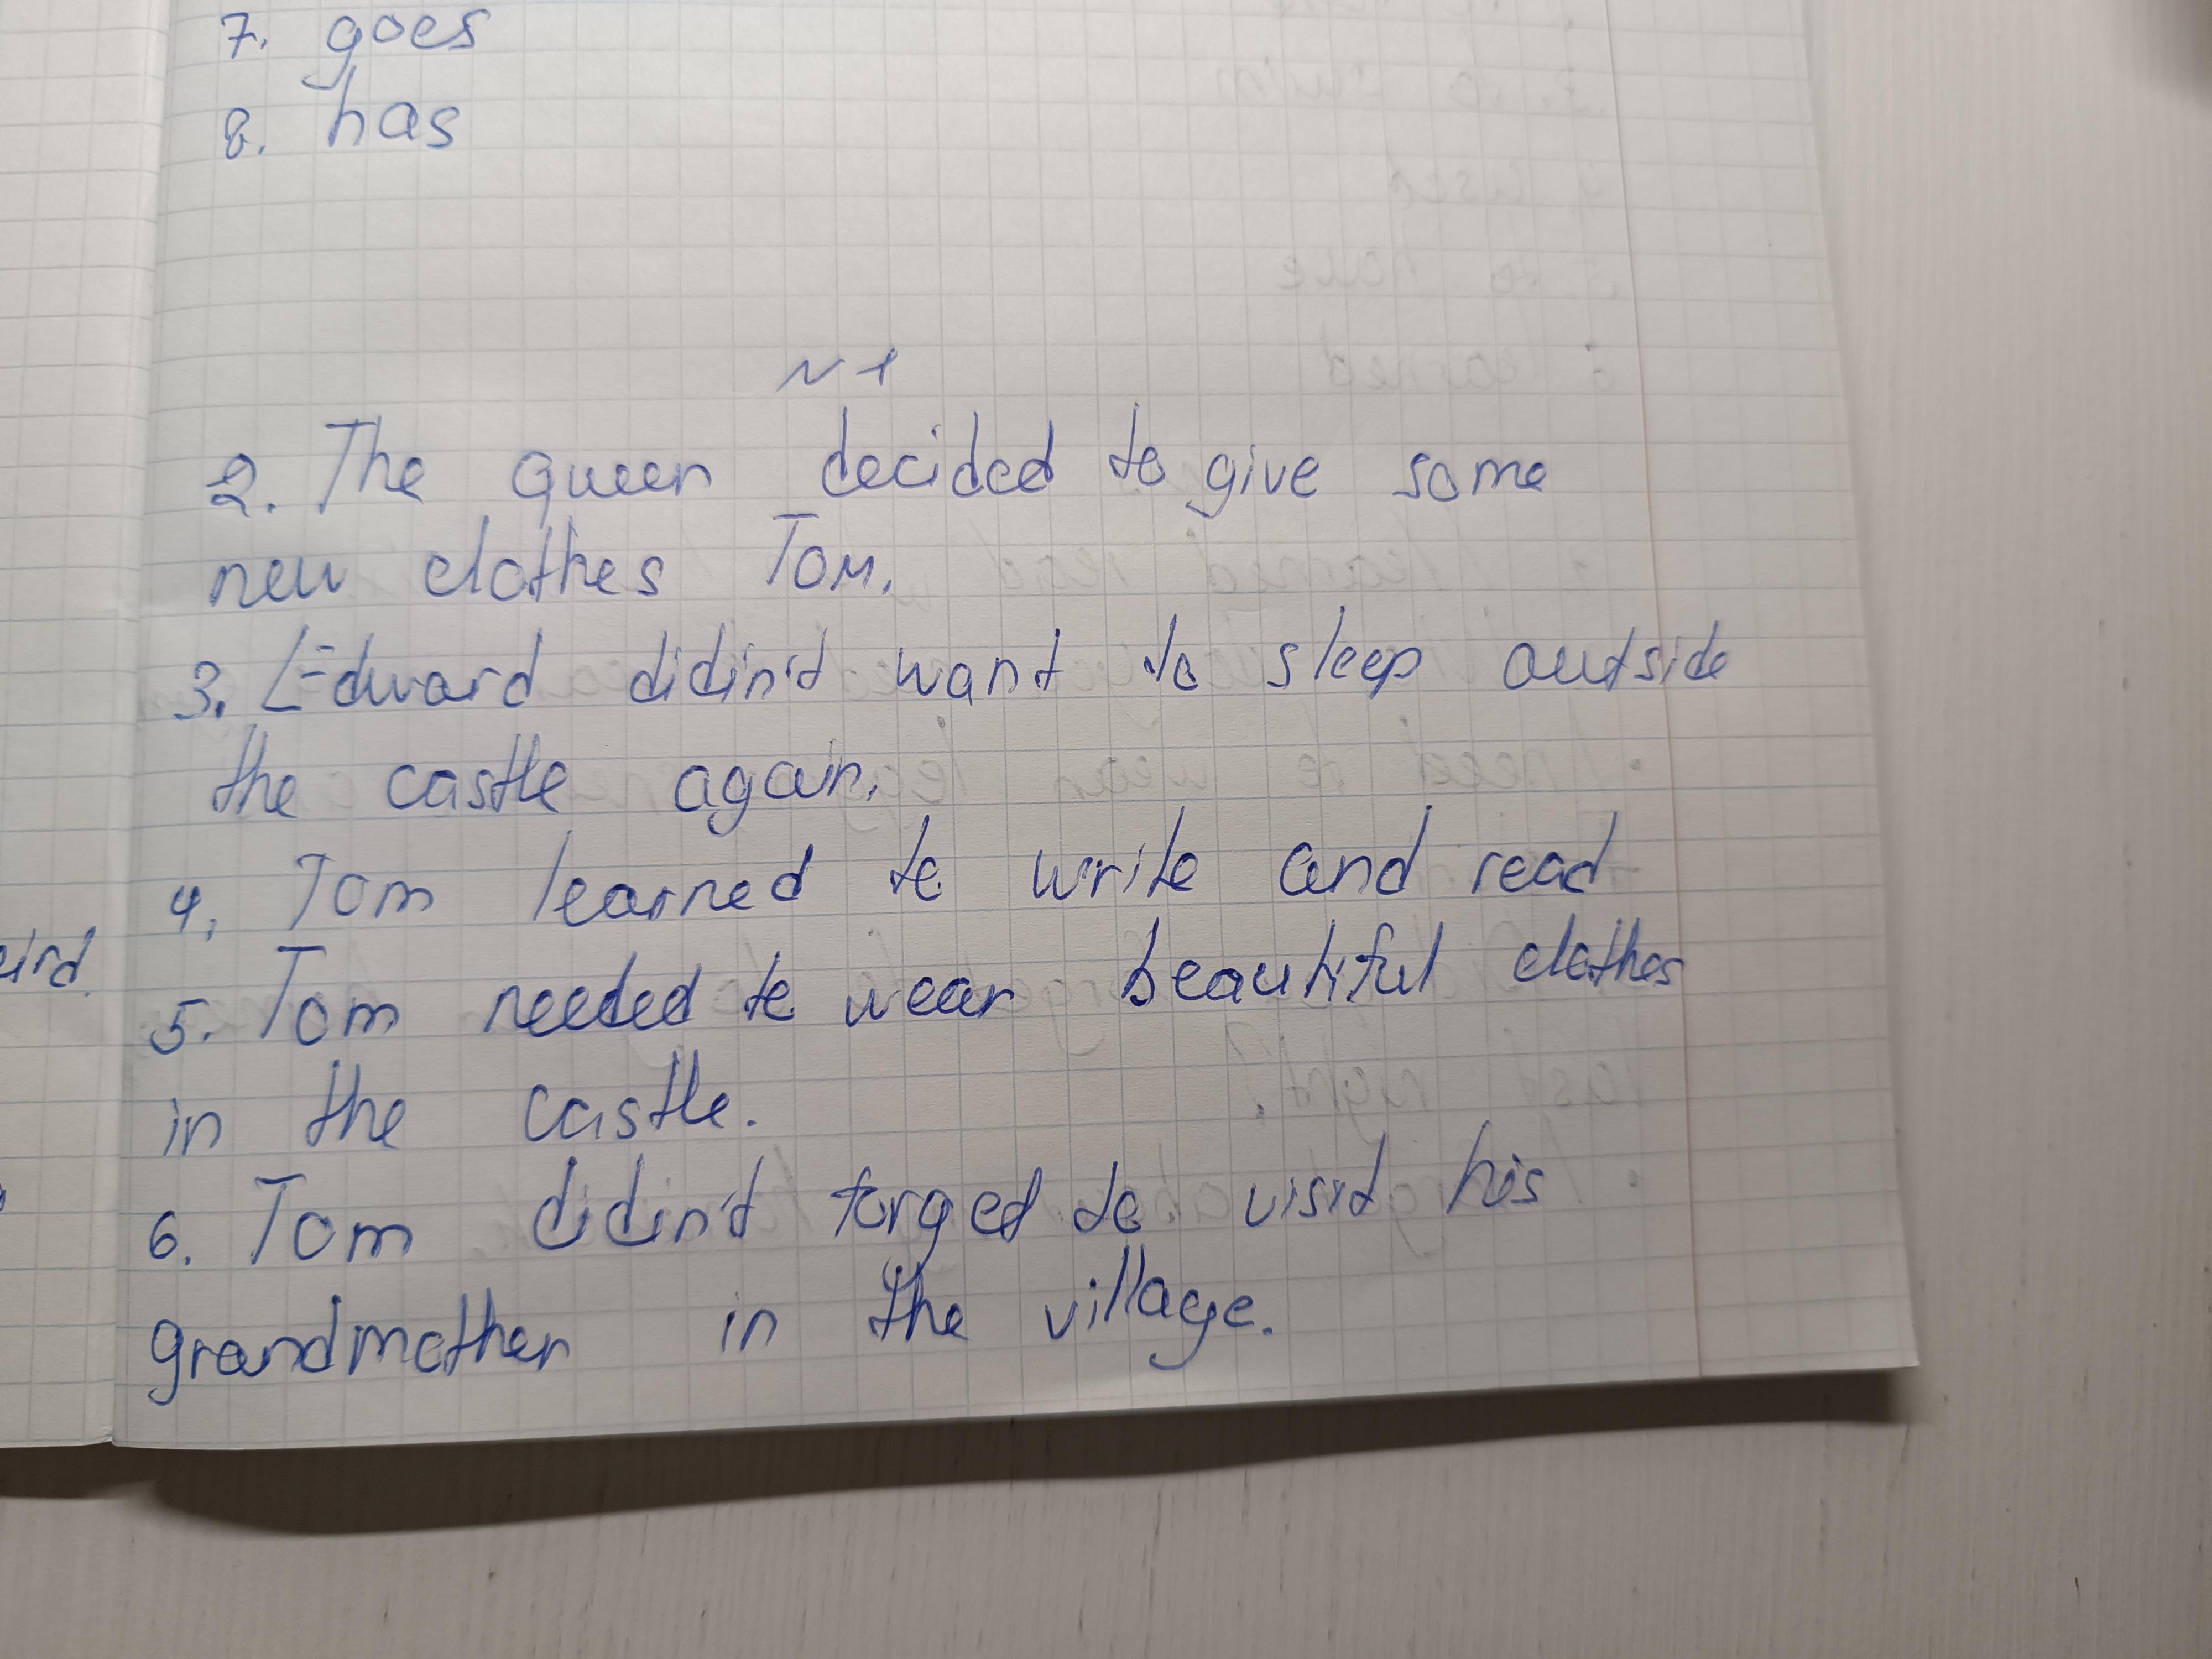 7. goes
8. has
N1
2. The queen decided to give some
new clothes Tom.
3. Edward didin't want to sleep outside
the castle again.
4. Tom learned to write and read
eird.
5. Tom needed to wear beautiful clothes
in the castle.
6. Tom didin't forged to visit his
grandmother in the village.